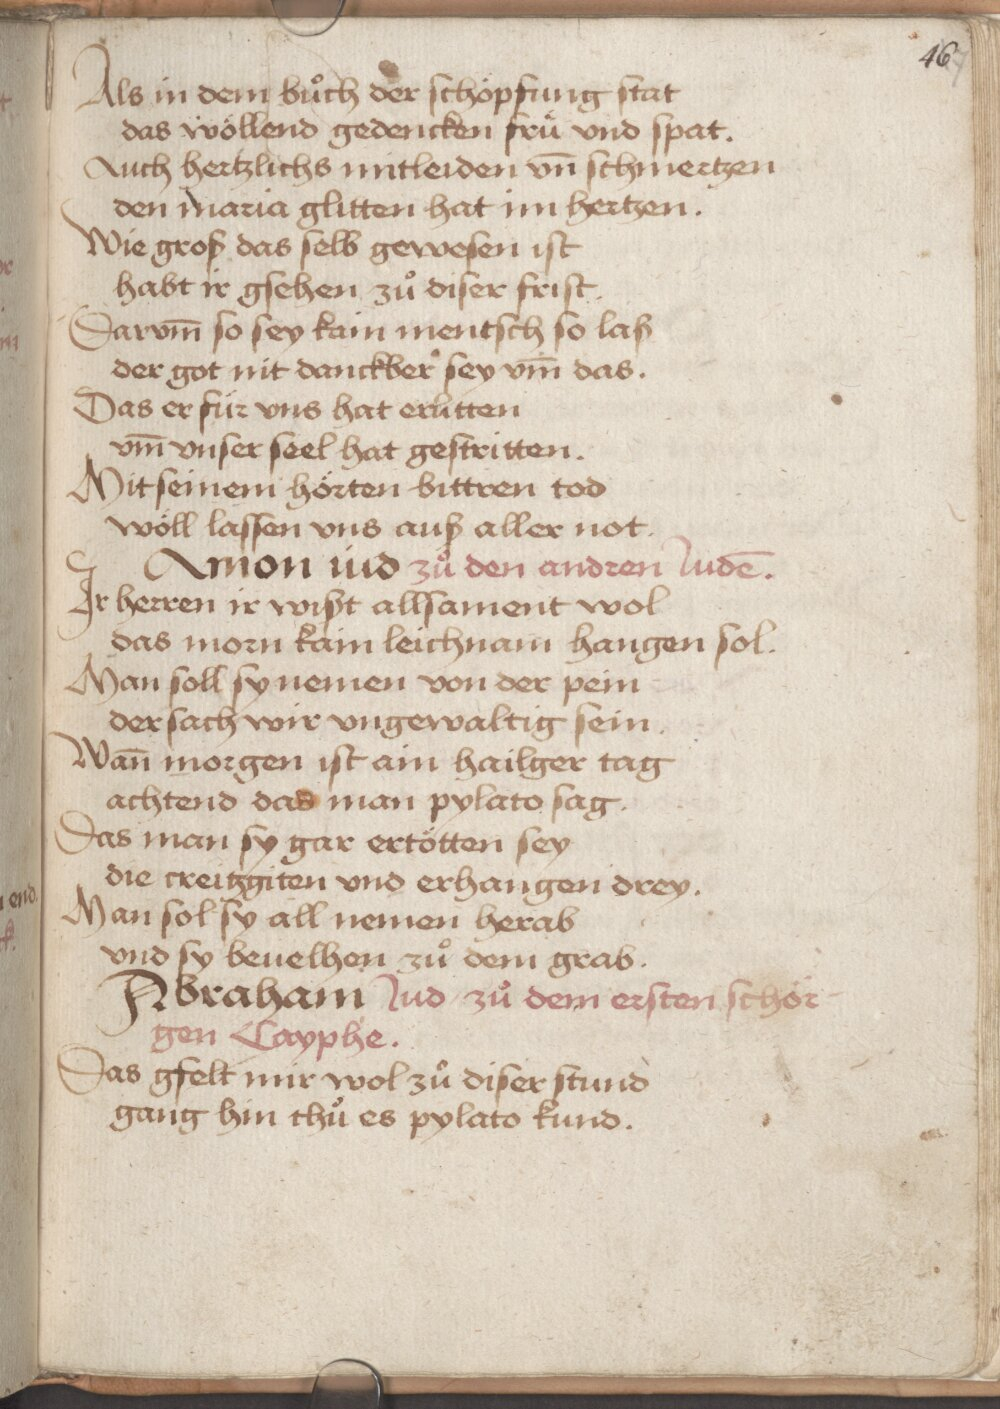 46
Als in dem bůch der schöpfung stat
das wöllend gedencken frü vnd spat.
Auch hertzlichs mitleiden vn̄ schmertzen
den maria glitten hat im hertzen.
Wie groß das selb gewesen ist
habt ir gsehen zů diser frist.
Darvm̄ so sey kain mentsch so laß
der got nit danckber sey vm̄ das.
Das er für vns hat erlitten
vm̄ vnser seel hat gestritten.
Mit seinem hörten bittren tod
wöll lassen vns auß aller not.
Amon iud zů den andren Judē.
Ir herren ir wißt allsament wol
das morn kain leichnam hangen sol.
Man soll sy nemen von der pein
der sach wir vngewaltig sein.
Wan̄ morgen ist ain hailger tag
achtend das man pylato sag.
Das man sy gar ertötten sey
die creitzgiten vnd erhangen drey.
Man sol sy all nemen herab
vnd sy beuelhen zů dem grab.
Abraham Jud zů dem ersten schör-
gen Cayphe.
Das gfelt mir wol zů diser stund
gang hin thů es pylato kund.